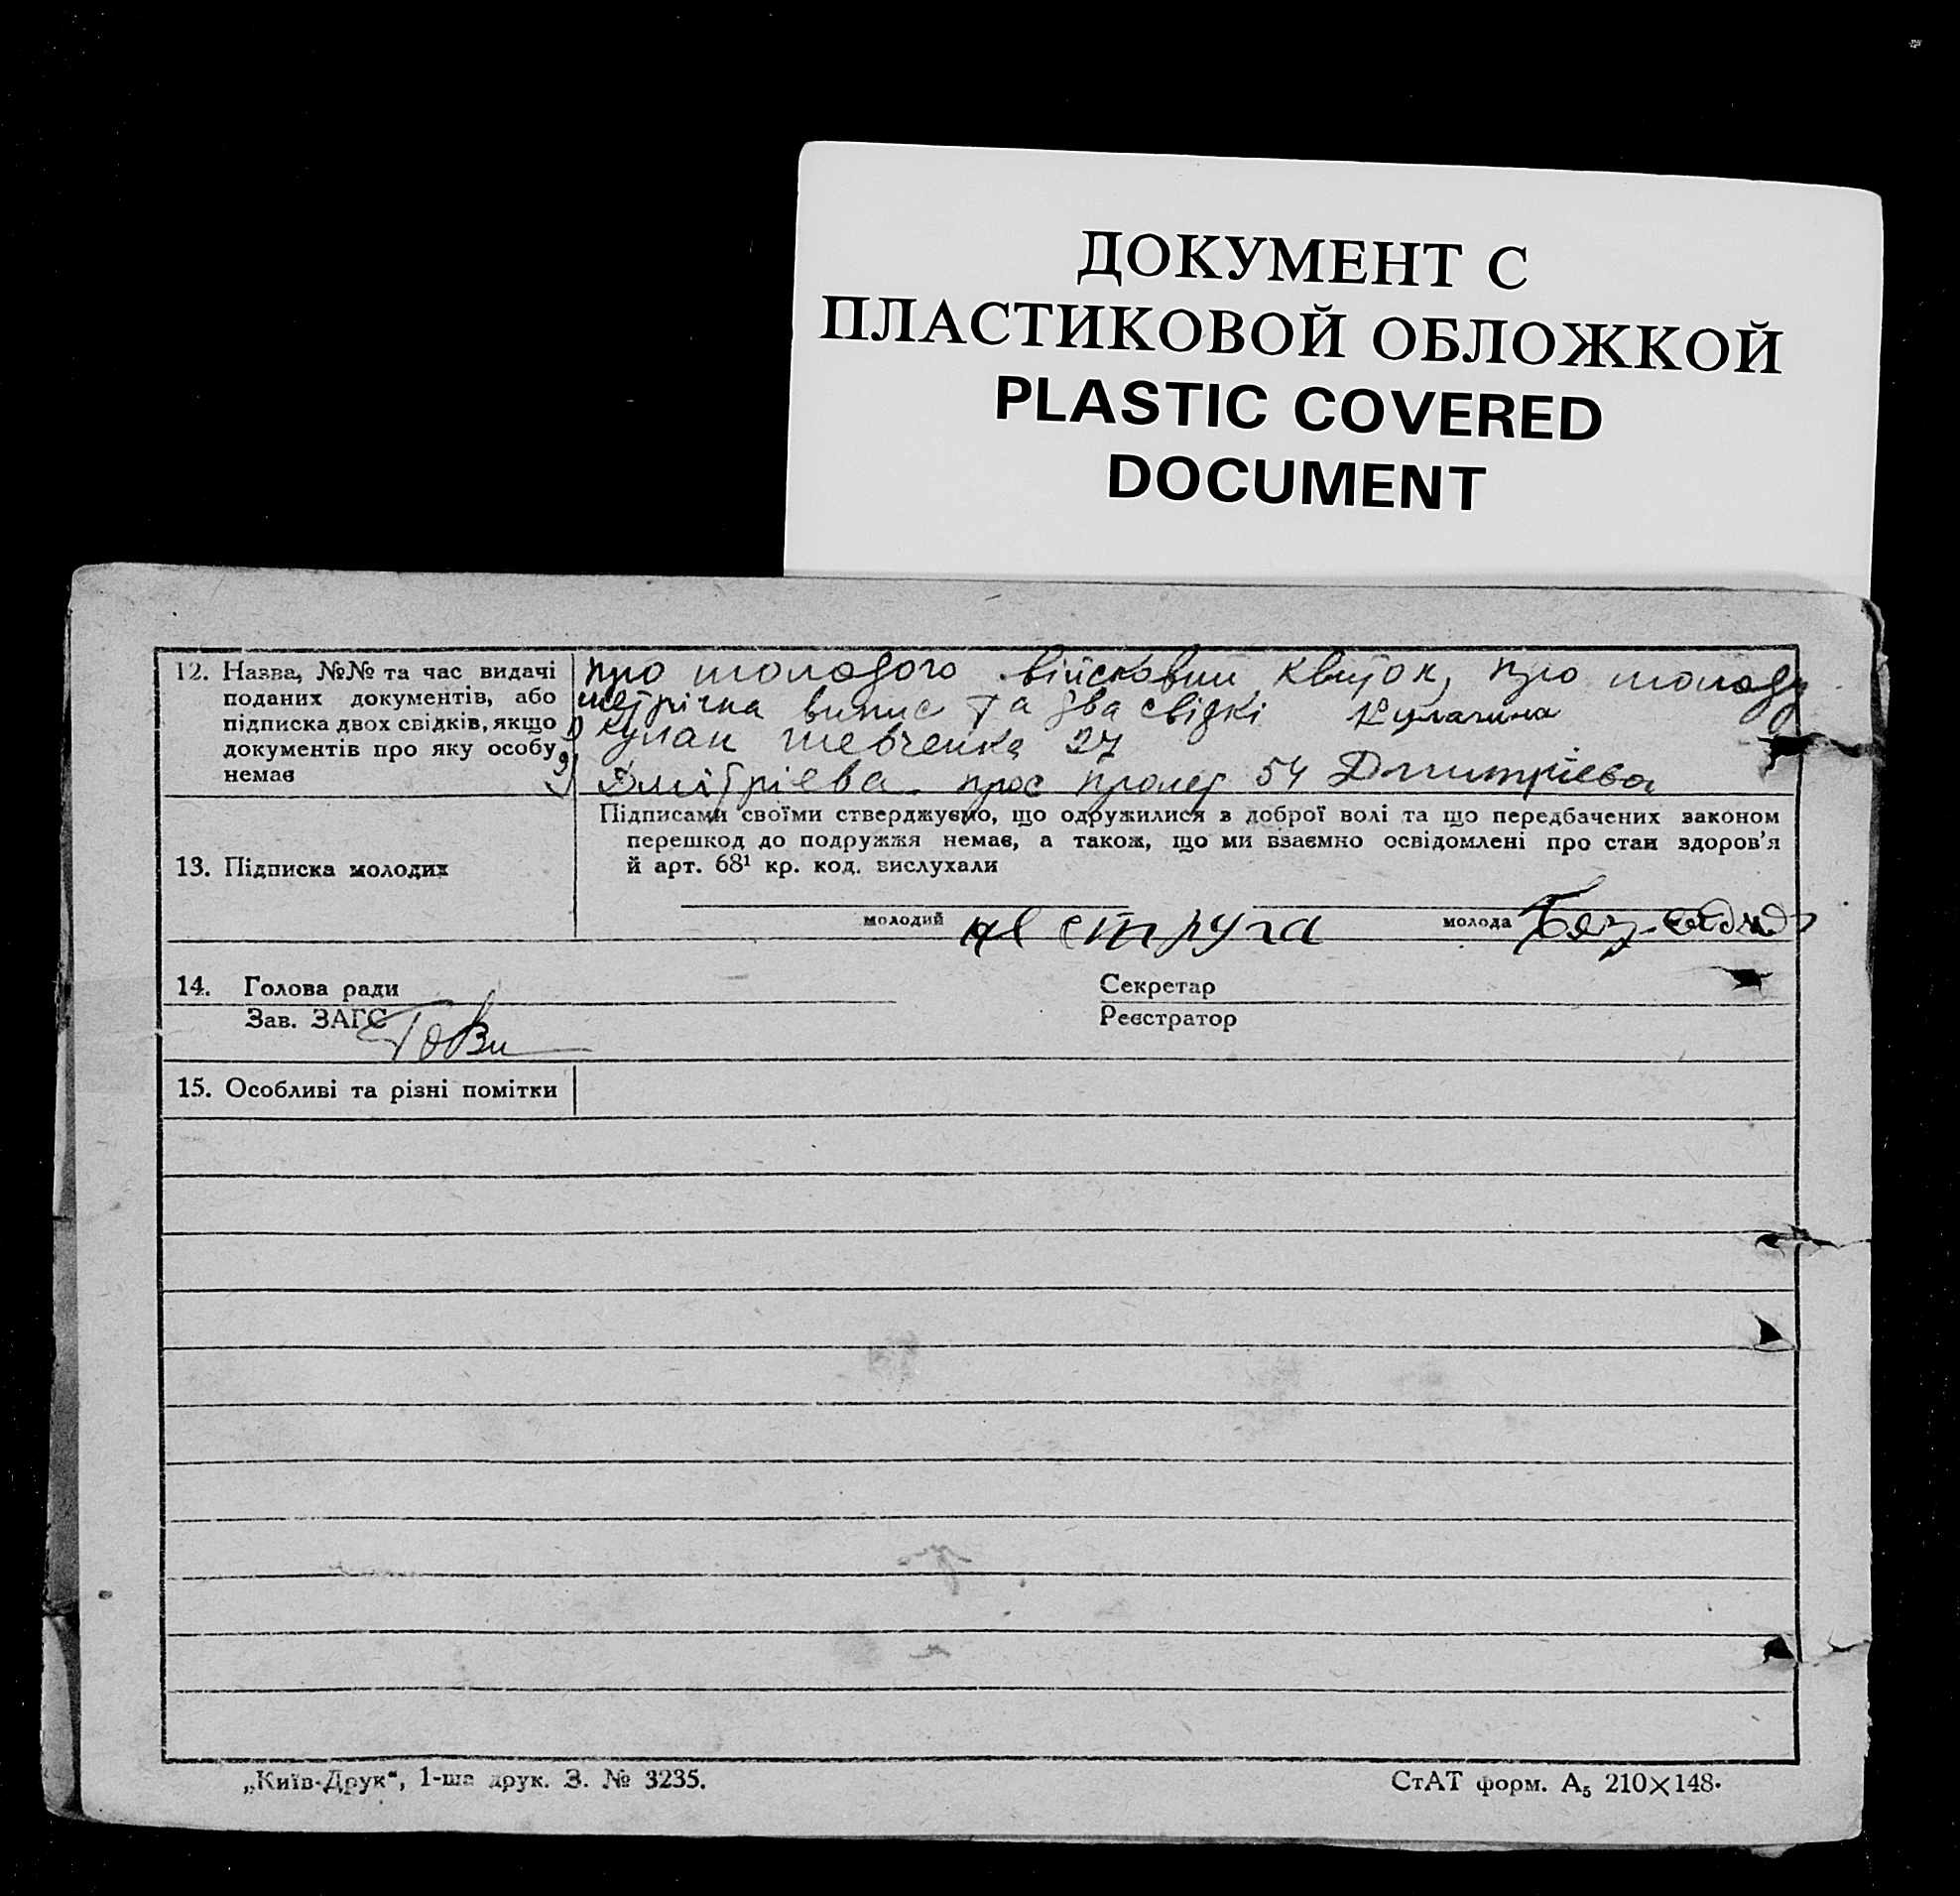 ДОКУМЕНТ С
ПЛАСТИКОВОЙ ОБЛОЖКОЙ
PLASTIC COVERED
DOCUMENT
12. Назва, №№ та час видачі
поданих документів, або
підписка двох свідків, якщо
документів про яку особу
немає
про молодого військовий квиток, про молоду
метрічна випис та два свідкі
Шевченка 27
2) Дмітрієва прос пролет 54 Дмитрієва
Підписами своїми стверджуємо, що одружилися в доброї волі та що передбачених законом
перешкод до подружжя немає, а також, що ми взаємно освідомлені про стан здоров'я
й арт. 68¹ кр. код. вислухали
13. Підписка молодих
молодий
молода
14. Голова ради
Секретар
Зав. ЗАГС
Реєстратор
15. Особливі та різні помітки
„Київ-Друк“, 1-ша друк. З. № 3235.
СтАТ форм. А₅ 210×148.